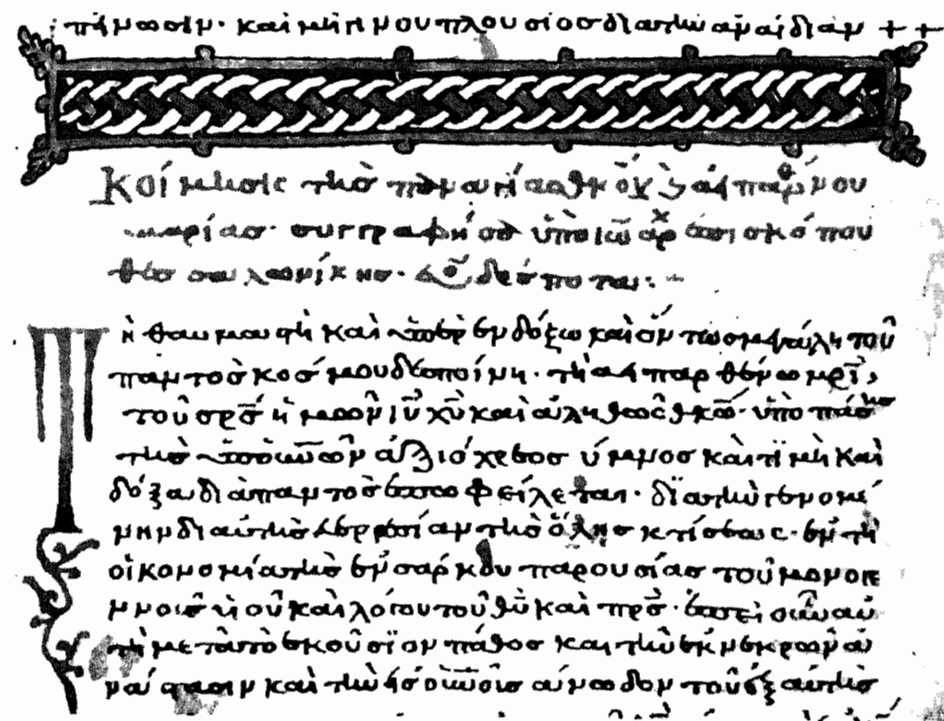 πήρωσιν· καὶ μήτι μου πλουσίοσ διὰ τὴν ἀναίδιαν ++
Κοίμησις τῆσ παναγίασ θκοῦ ϗ ἀειπαρθένου
μαρίασ· συγγραφῆσα ὑπὸ ἰω ἀρχ ἐπισκόπου
θεσσαλονίκησ· εὐ δέσποτα:·+
Τῆ θαυμαστῆ καὶ ὑπὲρ ενδόξω καὶ ὄντωσ μεγάλη τοῦ
παντὸσ κόσμου δεσποίνη· τῆ ἀειπαρθένω μρὶ,
τοῦ σρσ ἡμῶν ἰυ χυ καὶ ἀληθῶς θκω· ὑπὸ πάσησ
τῆσ ὑπὸ τὸν οὐνὸν ἀξιόχρεοσ ὕμνοσ καὶ τϊμὴ καὶ
δόξα διὰ παντὸσ ἐποφείλεται· δϊὰ τὴν γενομέ
νην δι αὐτῆσ ἐυεργεσίαν τῆσ ὅλησ κτίσεως· ἐν τῆ
οἰκονομία τῆσ ἐνσάρκου παρουσίασ τοῦ μονογε
νοῦσ ὑιοῦ καὶ λόγου τοῦ θυ καὶ πρσ·
μετὰ τὸ ἑκούσϊον πάθοσ καὶ τὴν ἐκ νεκρῶν ἀ
νάστασιν καὶ τὴν εἰσ οὐνοὺσ ἄνοδον τοῦ ἐξ αὐτῆσ